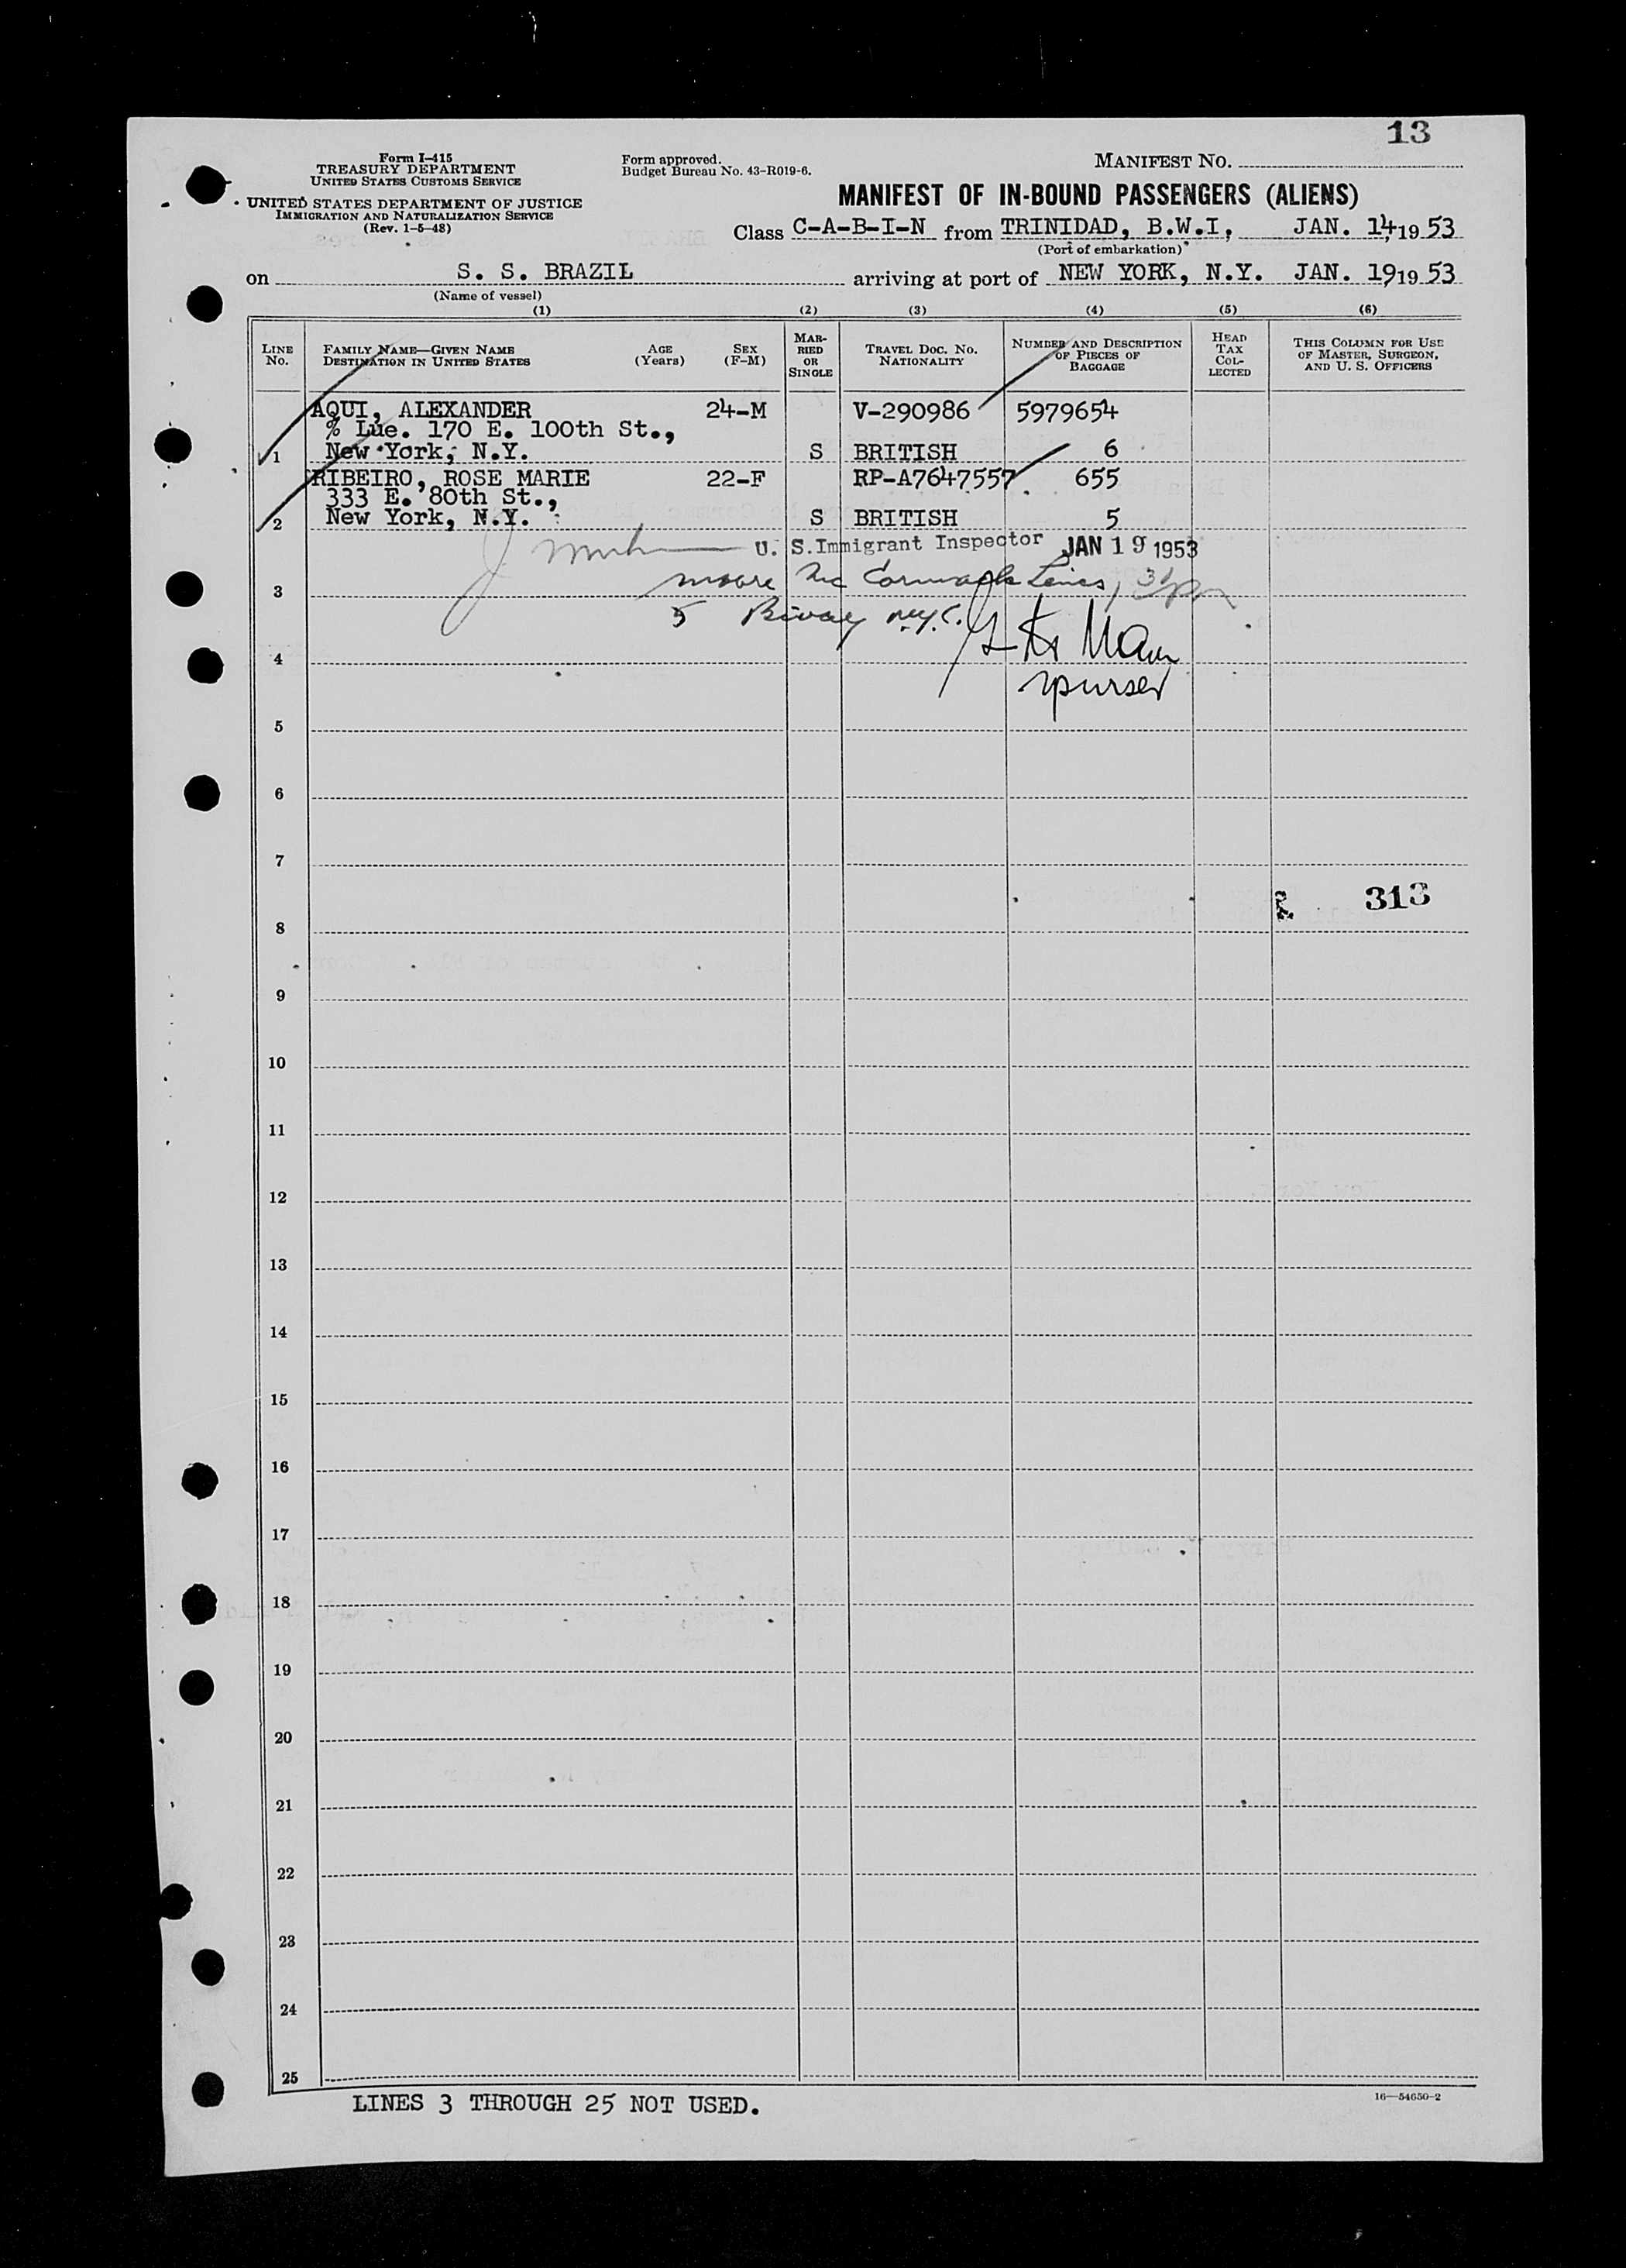 13
Form I-415
TREASURY DEPARTMENT
UNITED STATES CUSTOMS SERVICE
UNITED STATES DEPARTMENT OF JUSTICE
IMMIGRATION AND NATURALIZATION SERVICE
(Rev. 1-5-48)
Form approved.
Budget Bureau No. 43-R019-6.
MANIFEST NO.
MANIFEST OF IN-BOUND PASSENGERS (ALIENS)
Class C-A-B-I-N from TRINIDAD, B.W.I, JAN. 14, 1953
(Port of embarkation)
on S. S. BRAZIL arriving at port of NEW YORK, N.Y. JAN. 19, 1953
(Name of vessel)
(1) (2) (3) (4) (5) (6)
LINE No. FAMILY NAME—GIVEN NAME DESTINATION IN UNITED STATES AGE (Years) SEX (F-M) MARRIED OR SINGLE TRAVEL DOC. NO. NATIONALITY NUMBER AND DESCRIPTION OF PIECES OF BAGGAGE HEAD TAX COLLECTED THIS COLUMN FOR USE OF MASTER, SURGEON, AND U. S. OFFICERS
AQUI, ALEXANDER 24-M V-290986 5979654
% Lue. 170 E. 100th St.,
1 New York, N.Y. S BRITISH 6
RIBEIRO, ROSE MARIE 22-F RP-A7647557 655
333 E. 80th St.,
2 New York, N.Y. S BRITISH 5
U. S. Immigrant Inspector JAN 19 1953
Moore Mc Cormack Lines,
3
5 Bway N.Y.C.
4
purser
5
6
7
313
8
9
10
11
12
13
14
15
16
17
18
19
20
21
22
23
24
25
LINES 3 THROUGH 25 NOT USED.
16—54650-2